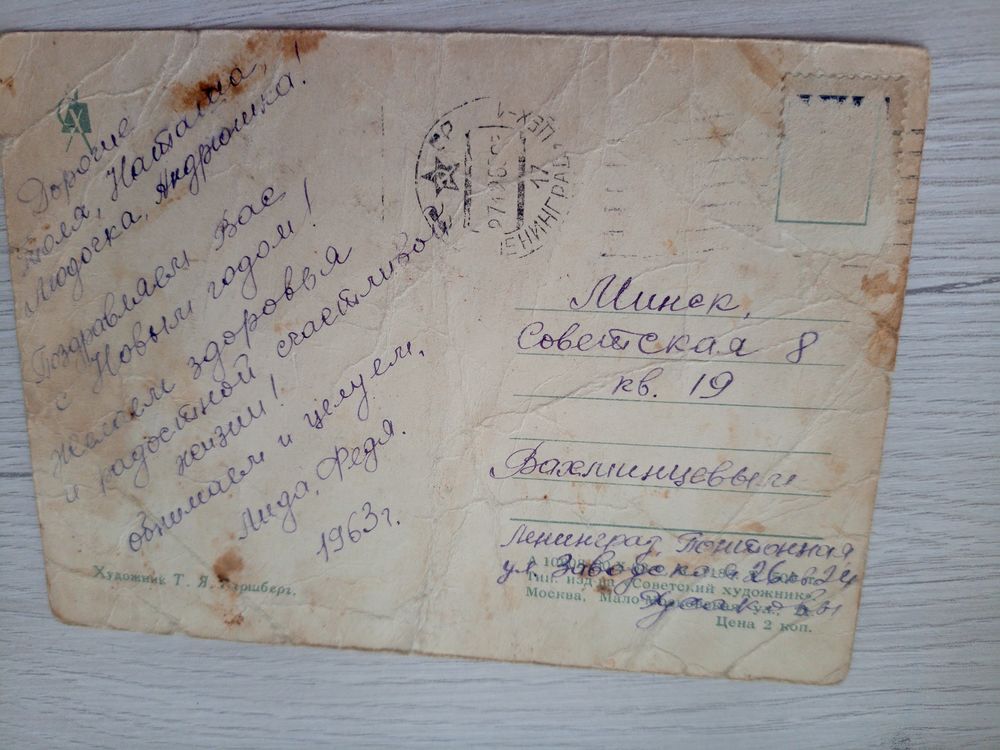 Дорогие
Толя, Наташа,
Людочка, Андрюшка!
Поздравляем Вас
с Новым годом!
Желаем здоровья
и радостной счастливой
жизни!
обнимаем и целуем,
Лида, Федя.
1963г.
Художник Т. Я.
ЛЕНИНГРАД 17
Минск,
Советская 8
кв. 19
Вахминцевым
Ленинград
ул. Заводская 26
Тип. изд-ва „Советский художник".
Москва, ул.,
Цена 2 коп.